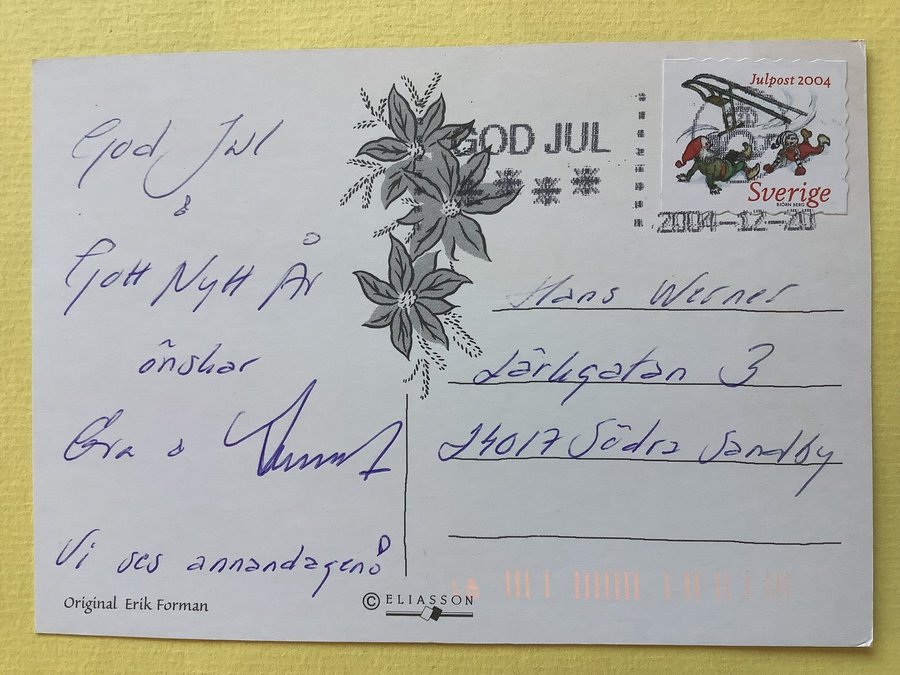 God Jul
&
Gott Nytt År
önskar
Eva &
Vi ses annandagen!
Original Erik Forman
© ELIASSON
GOD JUL
Julpost 2004
Sverige
BJÖRN BERG
2004-12-20
Hans Werner
Lärkgatan 3
24017 Södra Sandby